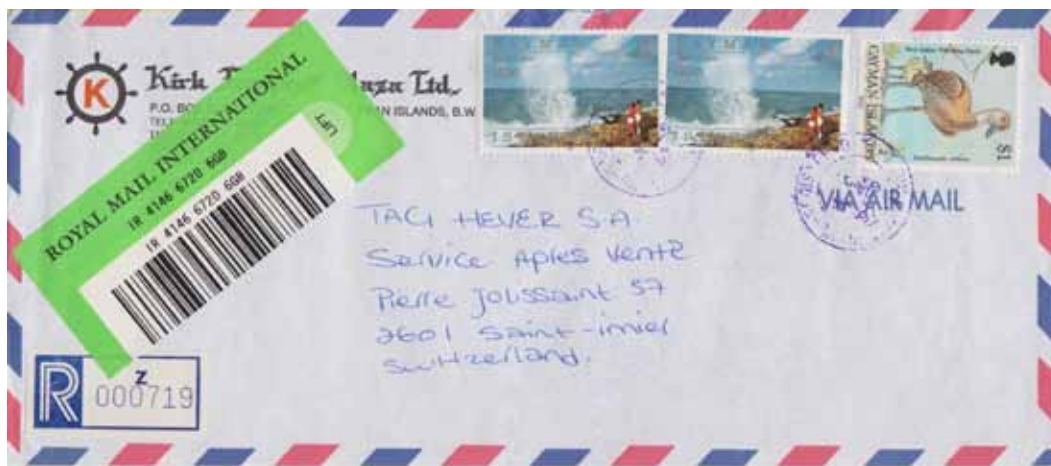 Kirk
Ltd.
P.O.
AN ISLANDS, B.W
ROYAL MAIL INTERNATIONAL
IR 4146 6720 6GB
IR 4146 6720 6GB
LIFT
15
CAYMAN ISLANDS
$1
VIA AIR MAIL
TAG HEUER S.A
Service Apres Vente
Pierre Jolissaint 57
2601 Saint-imier
Switzerland.
R
Z
000719